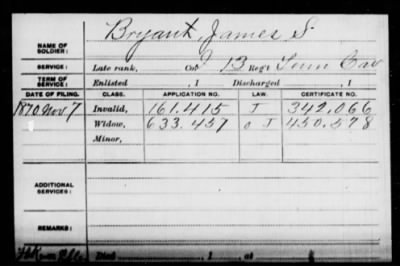 NAME OF SOLDIER: Bryant, James S
SERVICE: Late rank, Co. I 13 Reg't Tenn Cav
TERM OF SERVICE: Enlisted , 1 Discharged , 1
DATE OF FILING. CLASS. APPLICATION NO. LAW. CERTIFICATE NO.
1870 Nov 7 Invalid, 161.415 I 342,066
Widow, 633.457 o I 450.578
Minor,
ADDITIONAL SERVICES:
REMARKS:
Died , 1 , at